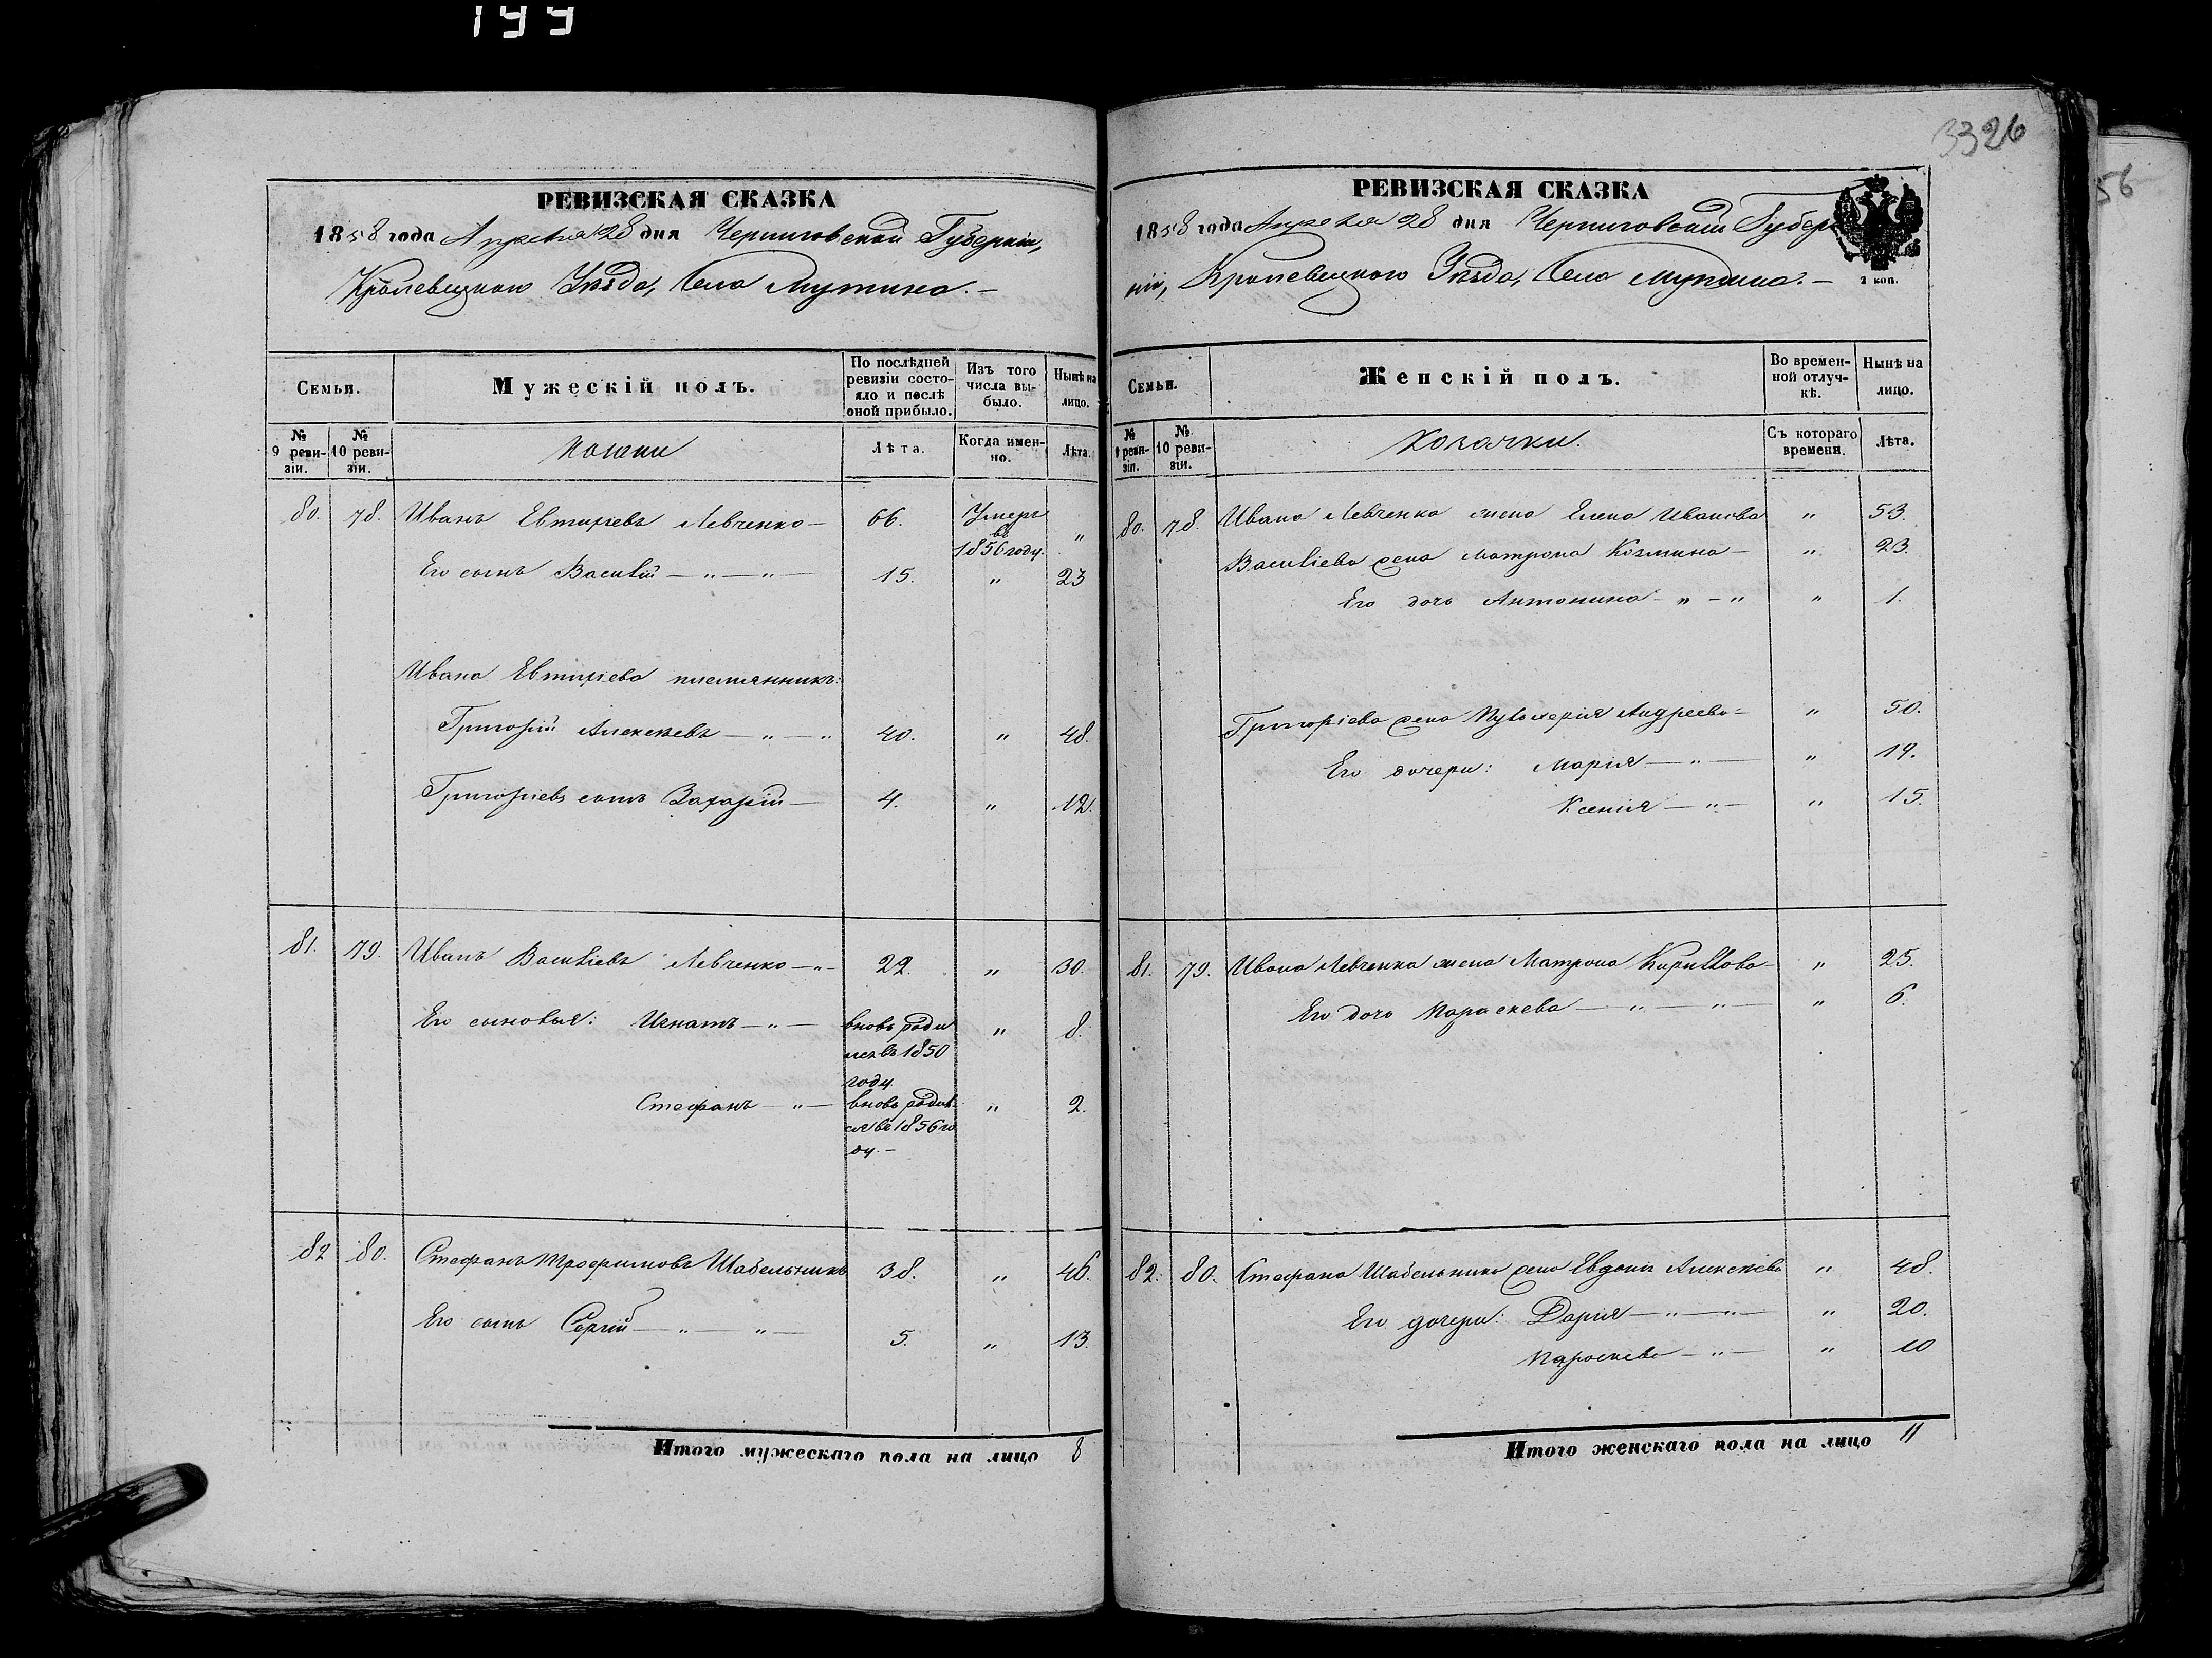 199
РЕВИЗСКАЯ СКАЗКА
1858 года Апреля 28 дня Черниговской Губерніи,
Кролевецкаго Уѣзда, Села Мутина. —
Семьи.
Мужескій полъ.
По послѣдней ревизіи состояло и послѣ оной прибыло.
Изъ того числа выбыло.
Нынѣ на лицо.
№ 9 ревизіи.
№ 10 ревизіи.
Лѣта.
Когда именно.
Лѣта.
80. 78. Иванъ Евтихіевъ Левченко — 66. Умеръ въ 1856 году. "
Его сынъ Василій — " — " — 15. " 23
Ивана Евтихіева племянникъ:
Григорій Алексѣевъ — " — " 40. " 48.
Григоріевъ сынъ Захарій — 4. " 12.
81. 79. Иванъ Васильевъ Левченко — " — 22. " 30.
Его сыновья: Игнатъ — " — вновь родился въ 1850 году. " 8.
Стефанъ — " — вновь родился въ 1856 году. — " 2.
82 80. Стефанъ Трофимовъ Шабельникъ 38. " 46.
Его сынъ Сергій — " — " — 5. " 13.
Итого мужескаго пола на лицо 8
3326
РЕВИЗСКАЯ СКАЗКА
1858 года Апреля 28 дня Черниговской Губер
ніи, Кролевецкаго Уѣзда, Села Мутина. —
2 коп.
Семьи.
Женскій полъ.
Во временной отлучкѣ.
Нынѣ на лицо.
№ 9 ревизіи.
№ 10 ревизіи.
Козачки
Съ котораго времени.
Лѣта.
80. 78. Ивана Левченка жена Елена Иванова " 53.
Васильева жена Матрона Козмина — " 23.
Его дочь Антонина — " — " " 1.
Григоріева жена Пульхерія Андреева — " 50.
Его дочери: Марія — " — " 19.
Ксенія — " — " 15.
81. 79. Ивана Левченка жена Матрона Кирилова — " 25.
Его дочь Параскева — " — " — " 6.
82. 80. Стефана Шабельника жена Евдокія Алексѣева " 48.
Его дочери: Дарія — " — " — " 20.
Параскева — " — " 10
Итого женскаго пола на лицо 11
56